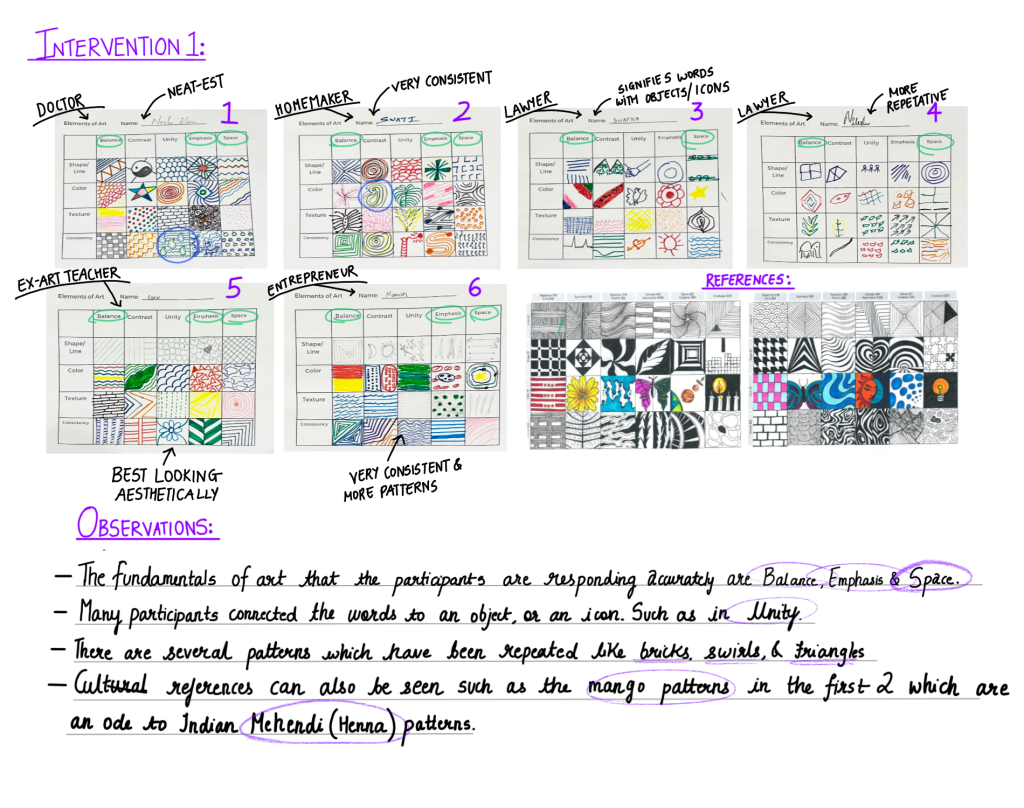 INTERVENTION 1:
DOCTOR
NEAT-EST
1
Elements of Art Name:
Balance Contrast Unity Emphasis Space
Shape/
Line
Color
Texture
Consistency
HOMEMAKER
VERY CONSISTENT
2
Elements of Art Name: SWATI
Balance Contrast Unity Emphasis Space
Shape/
Line
Color
Texture
Consistency
LAWYER
SIGNIFIES WORDS
WITH OBJECTS/ICONS
3
Elements of Art Name: SWAPNA
Balance Contrast Unity Emphasis Space
Shape/
Line
Color
Texture
Consistency
LAWYER
MORE
REPETATIVE
4
Elements of Art Name:
Balance Contrast Unity Emphasis Space
Shape/
Line
Color
Texture
Consistency
EX-ART TEACHER
5
Elements of Art Name:
Balance Contrast Unity Emphasis Space
Shape/
Line
Color
Texture
Consistency
BEST LOOKING
AESTHETICALLY
ENTREPRENEUR
6
Elements of Art Name:
Balance Contrast Unity Emphasis Space
Shape/
Line
Color
Texture
Consistency
VERY CONSISTENT &
MORE PATTERNS
REFERENCES:
OBSERVATIONS:
– The fundamentals of art that the participants are responding accurately are Balance, Emphasis & Space.
– Many participants connected the words to an object, or an icon. Such as in Unity.
– There are several patterns which have been repeated like bricks, swirls, & triangles
– Cultural references can also be seen such as the mango patterns in the first 2 which are
an ode to Indian Mehendi (Henna) patterns.